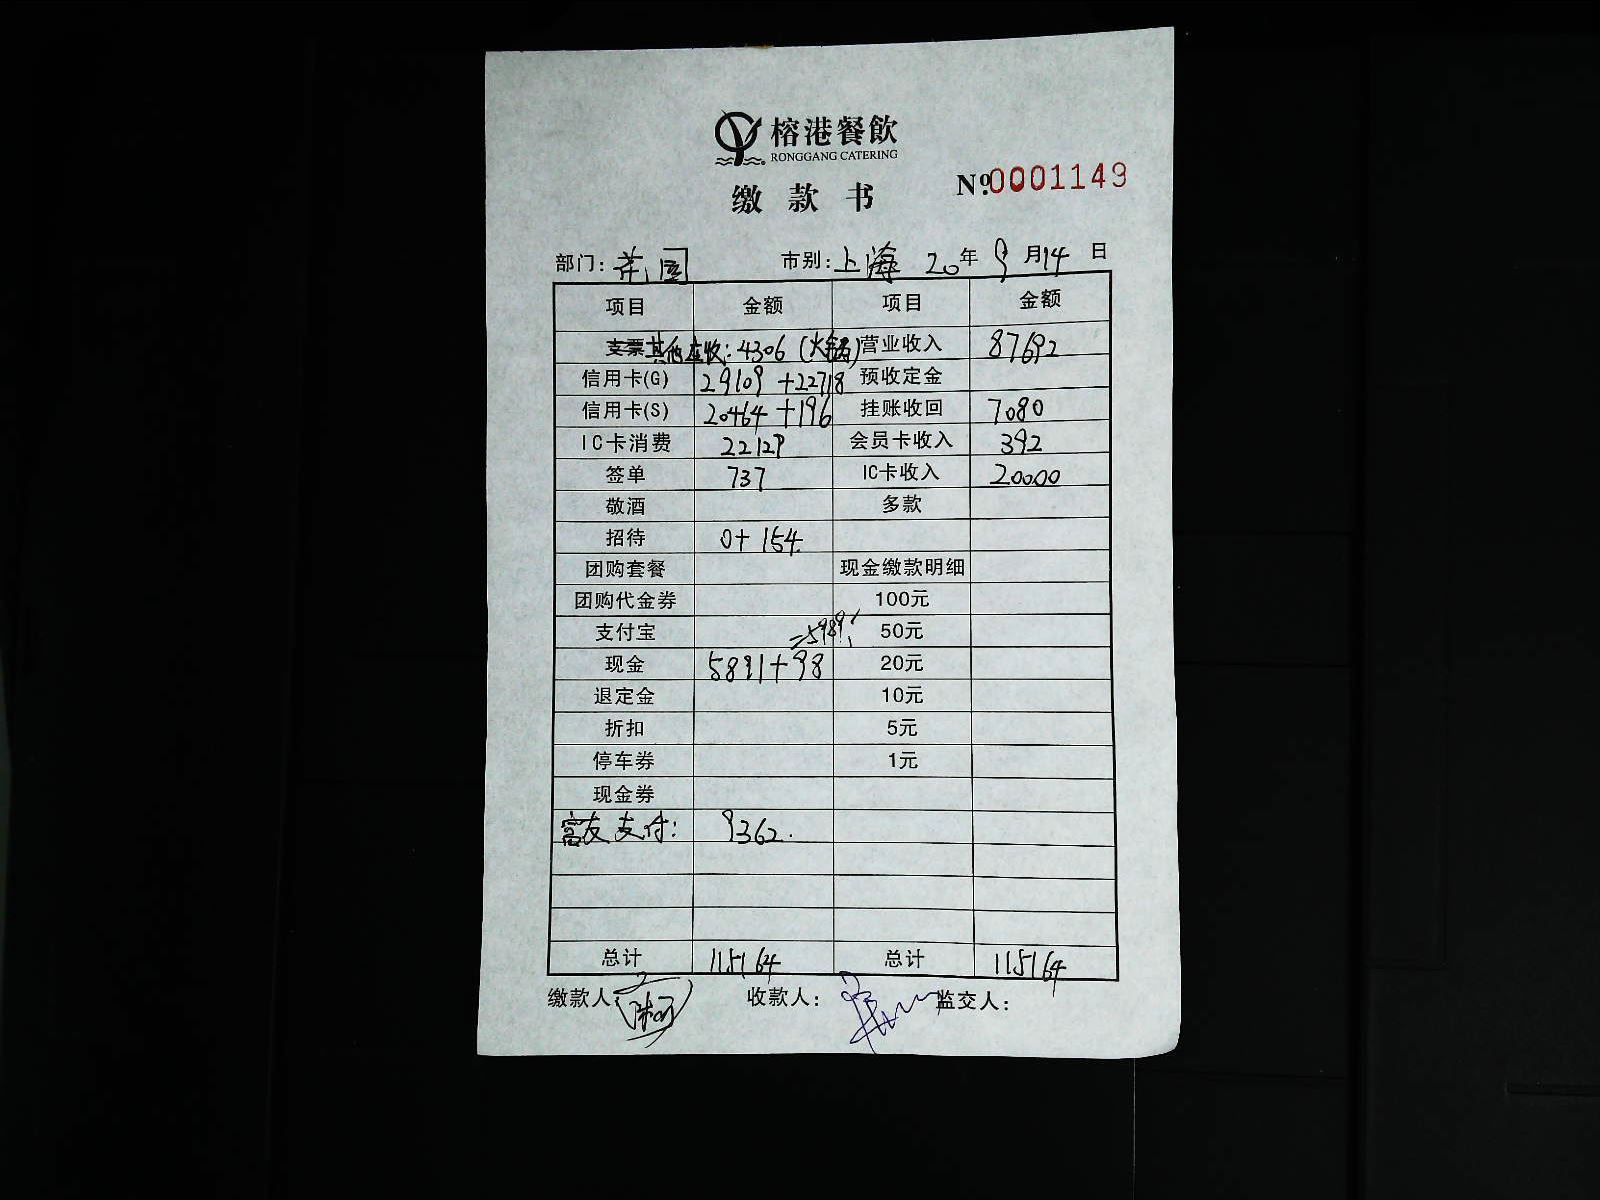 榕港餐飲
RONGGANG CATERING
缴款书
№0001149
部门: 市别: 上海 20年9月14日
项目 金额 项目 金额
支票 其他应收: 4306 (火锅) 营业收入 87692
信用卡(G) 29109 +22718 预收定金
信用卡(S) 20464 +196 挂账收回 7080
IC卡消费 22129 会员卡收入 392
签单 737 IC卡收入 20000
敬酒 多款
招待 0+ 154.
团购套餐 现金缴款明细
团购代金券 100元
支付宝 =5989! 50元
现金 5891+98 20元
退定金 10元
折扣 5元
停车券 1元
现金券
富友支付: 9362.
总计 115164 总计 115164
缴款人: 收款人: 监交人: